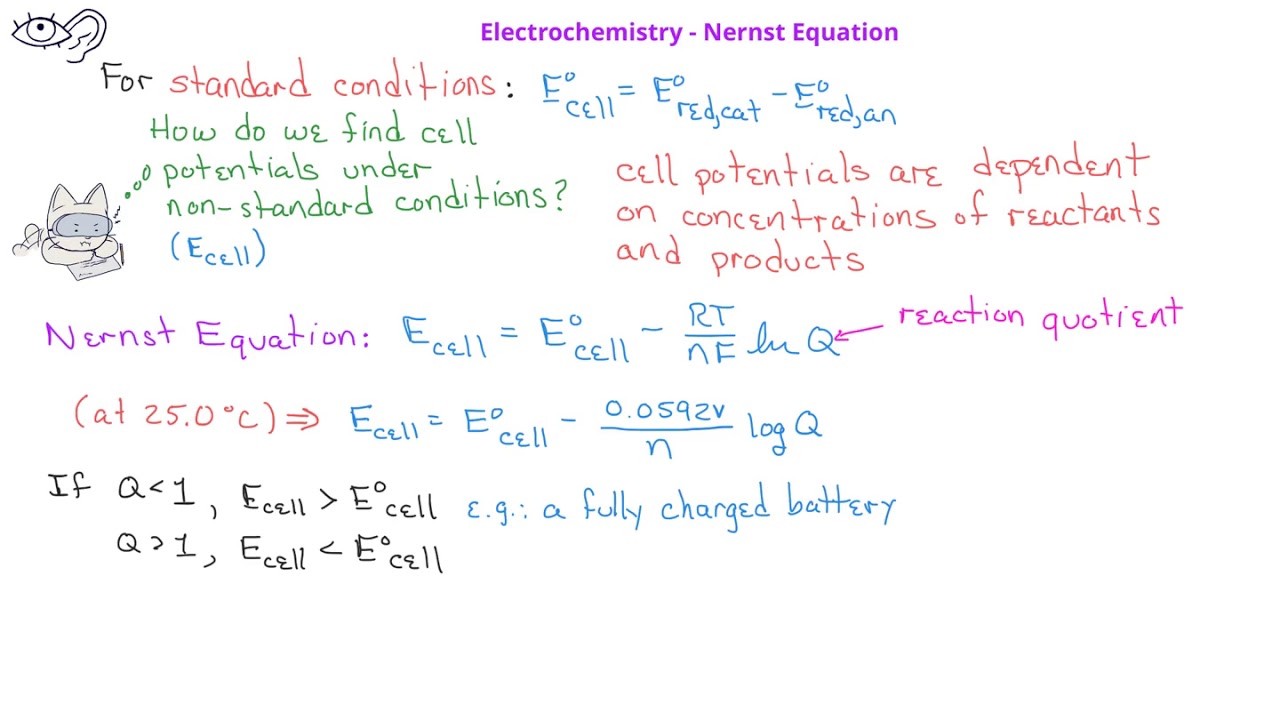 Electrochemistry - Nernst Equation
For standard conditions: E°cell = E°red,cat - E°red,an
How do we find cell
potentials under
non-standard conditions?
(Ecell)
cell potentials are dependent
on concentrations of reactants
and products
Nernst Equation: Ecell = E°cell - RT/nF ln Q
reaction quotient
(at 25.0°C) ⇒ Ecell = E°cell - 0.0592V/n log Q
If Q < 1, Ecell > E°cell e.g.: a fully charged battery
Q > 1, Ecell < E°cell